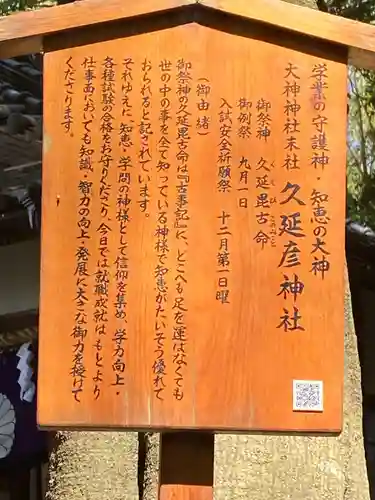 学業の守護神・知恵の大神
大神神社末社 久延彦神社
御祭神 久延毘古命
くえびこのみこと
御例祭 九月一日
入試安全祈願祭 十二月第一日曜
(御由緒)
御祭神の久延毘古命は『古事記』に、どこへも足を運ばなくても
世の中の事を全て知っている神様で知恵がたいそう優れて
おられると記されています。
それゆえに、知恵・学問の神様として信仰を集め、学力向上・
各種試験の合格をお守りくださり、今日では就職成就はもとより
仕事面においても知識、智力の向上・発展に大きな御力を授けて
くださります。